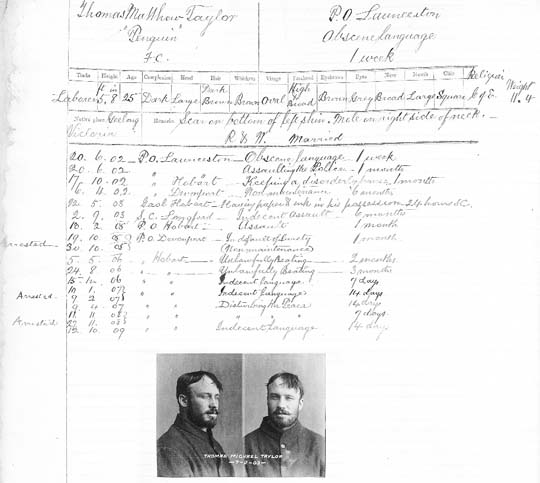 Thomas Matthew Taylor
P.O. Launceston
"Penguin"
Obscene language
F.C.
1 week
Trade Height Age Complexion Head Hair Whiskers Visage Forehead Eyebrows Eyes Nose Mouth Chin Religion Weight
ft in
Laborer 5.8 25 Dark Large Dark Brown Brown Oval High Broad Brown Grey Broad Large Square C of E. 11.4
Native place Geelong Victoria Remarks Scar on bottom of left shin. Mole on right side of neck.
R & W. Married
20. 6. 02 P.O. Launceston Obscene language 1 week
20. 6. 02 " Assaulting the Police 1 months
17. 10. 02 " Hobart Keeping a disorderly house 1 month
" Devonport 6 months
5. 03 Gaol Hobart Having paper & ink in his possession 24 hours
2. 9. 03 S.C. Longford Indecent Assault 6 months
P.O. Hobart Assault 1 month
Arrested 19. 10. P.O. Devonport In default of Surety 1 month
(Non maintenance)
5. 5. 06 " Hobart Unlawfully Beating 2 months
24. 8. 06 " " Unlawfully Beating 3 months
06 " " Indecent language 7 days
Arrested " " Indecent Language 14 days
" " Disturbing the Peace 14 days
" " " " " 7 days
Arrested
12. 10. 09 " " Indecent Language 14 day
THOMAS MICHAEL TAYLOR